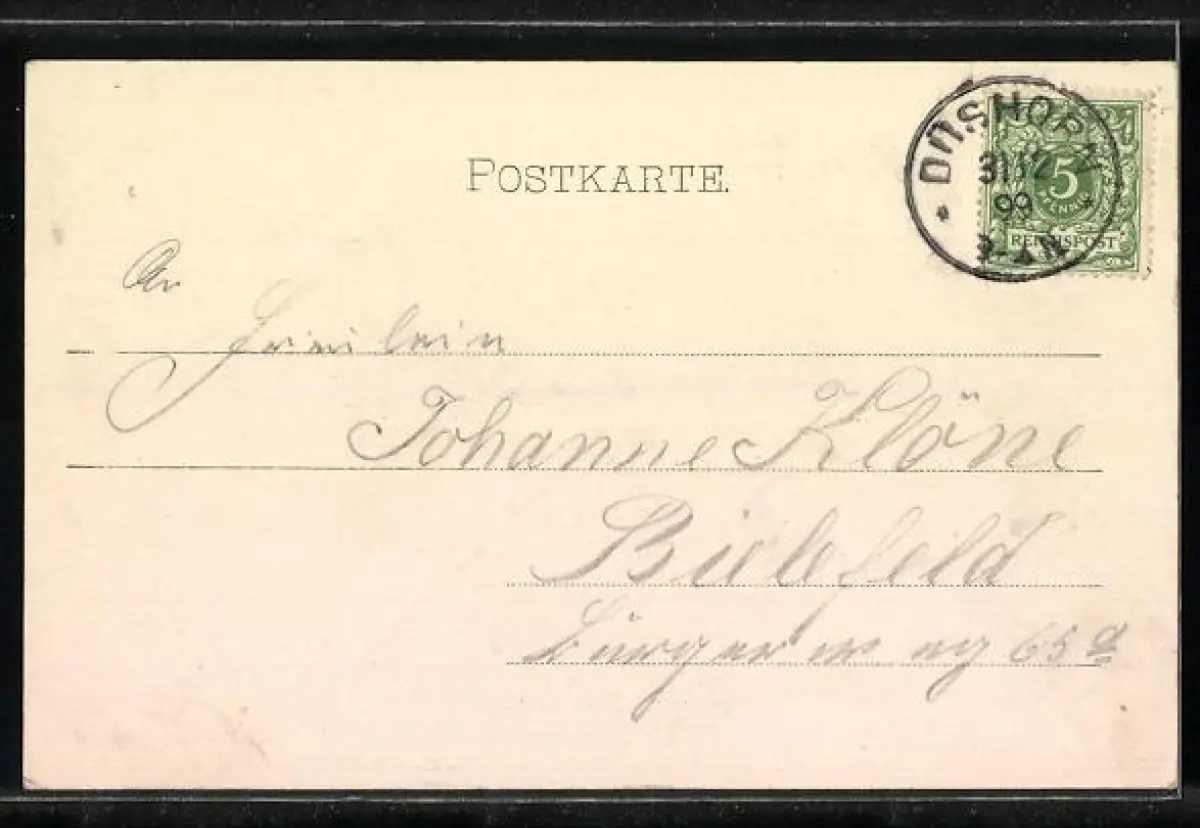 POSTKARTE.
DÜSHORN
31 12
99
5
PFENNIG
REICHSPOST
An
Fräulein
Johanne Klöne
Bielefeld
Bürgerweg 65a